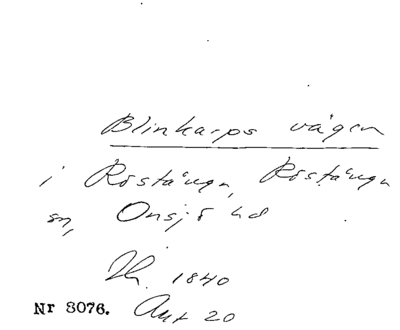 Blinkarps vägen
i Röstånga, Röstånga
sn, Onsjö hd
1840
Nr 3076. Akt 20